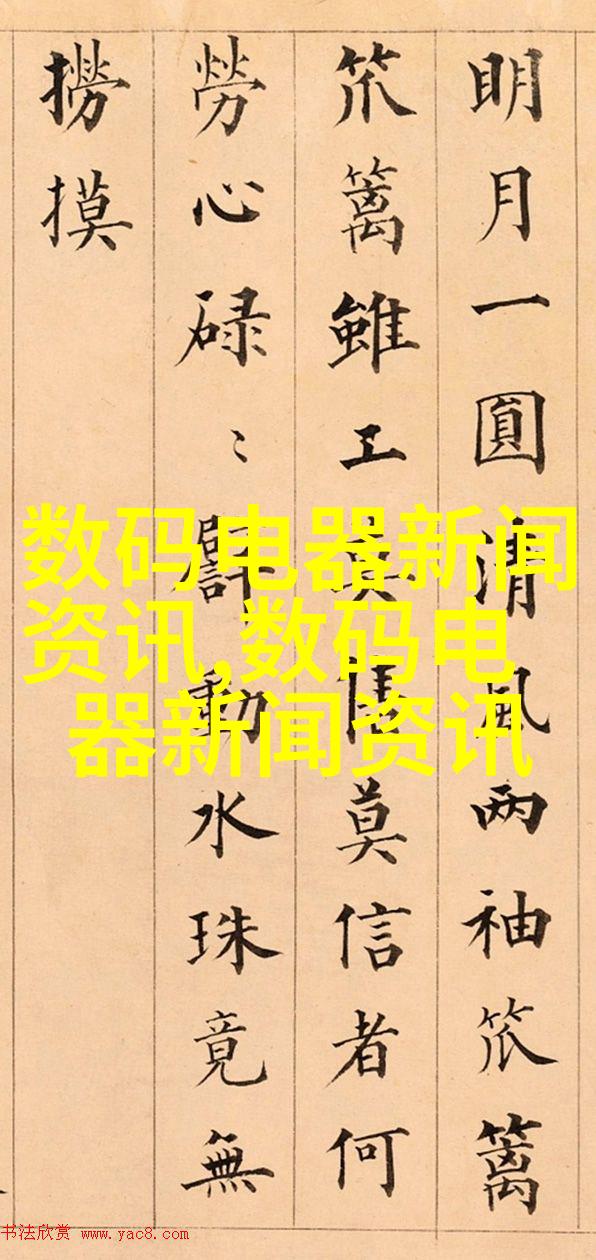 明月一圓清風两袖笊篱
笊篱雖莫信者何
勞心碌〻動水珠竟無
撈摸
数码电器新闻
资讯,数码电
器新闻资讯
书法欣赏 www.yac8.com